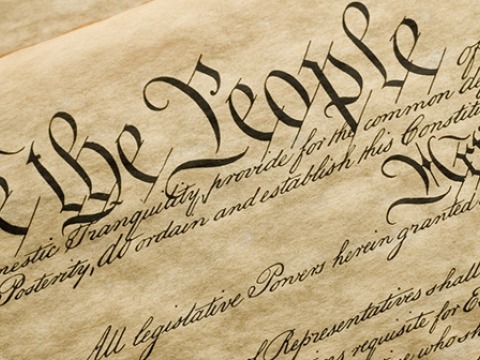 the People of
mestic Tranquility, provide for the common de
Posterity, do ordain and establish this Constitu
All legislative Powers herein granted
of Representatives shall
requisite for
who sh